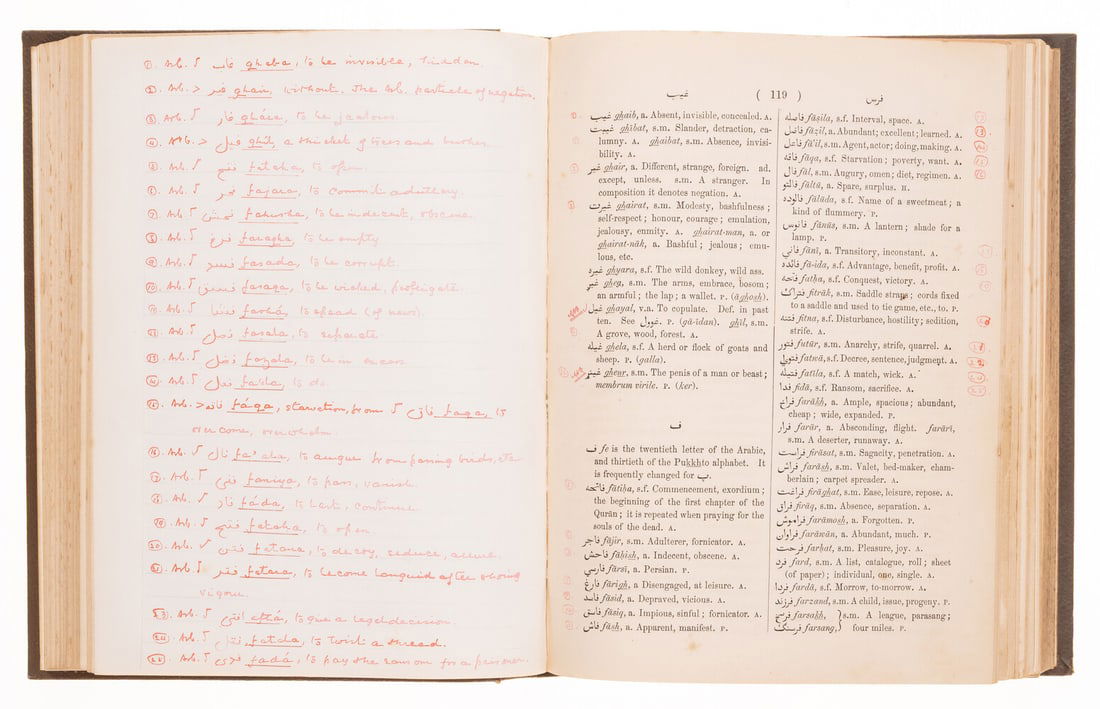 ①. Arb. √ غاب gheba, to be invisible, hidden.
②. Arb. > غير ghair, without. The Arb. particle of negation.
③. Arb. √ غار ghára, to be jealous.
④. Arb. > غيل ghíl, a thicket of trees and bushes.
⑤. Arb. √ فتح fatcha, to open.
⑥. Arb. √ فجر fajara, to commit adultery.
⑦. Arb. √ فحش fahusha, to be indecent, obscene.
⑧. Arb. √ فرغ faragha, to be empty
⑨. Arb. √ فسد fasada, to be corrupt.
⑩. Arb. √ فسق fasaqa, to be wicked, profligate.
Arb. √ to spread (of news).
Arb. √ فصل fasala, to separate
Arb. √ فضل fazala, to be in excess
Arb. √ فعل fa'ala, to do.
Arb. > فاقه fáqa, starvation, from √ فاق faqa, to
overcome, overwhelm.
Arb. √ فال fa'ala, to augur from passing birds, etc.
Arb. √ فني faniya, to pass, vanish.
Arb. √ فاد fáda, to last, continue.
⑲. Arb. √ فتح fataha, to open.
⑳. Arb. √ فتن fatana, to decoy, seduce, allure.
Arb. √ فتر fatara, to become languid after showing
vigour.
Arb. √ افتى aftá, to give a legal decision.
Arb. √ فتل fatala, to twist a thread.
Arb. √ فدى fadá, to pay the ransom for a prisoner.
غيب ( 119 ) فرس
غيب ghaib, a. Absent, invisible, concealed. A.
غيبت ghībat, s.m. Slander, detraction, ca-
lumny. A. ghaibat, s.m. Absence, invisi-
bility. A.
غير ghair, a. Different, strange, foreign. ad.
except, unless. s.m. A stranger. In
composition it denotes negation. A.
غيرت ghairat, s.m. Modesty, bashfulness;
self-respect; honour, courage; emulation,
jealousy, enmity. A. ghairat-man, a. or
ghairat-nāk, a. Bashful; jealous; emu-
lous, etc.
غيره ghyara, s.f. The wild donkey, wild ass.
غيږ gheg, s.m. The arms, embrace, bosom;
an armful; the lap; a wallet. P. (āghosh).
غيل ghayal, v.a. To copulate. Def. in past
ten. See غوول. P. (gā-īdan). ghīl, s.m.
A grove, wood, forest. A.
غيله ghela, s.f. A herd or flock of goats and
sheep. P. (galla).
ghenr, s.m. The penis of a man or beast;
membrum virile. P. (ker).
ف
ف fe is the twentieth letter of the Arabic,
and thirtieth of the Pukkhto alphabet. It
is frequently changed for پ.
فاتحه fātiha, s.f. Commencement, exordium;
the beginning of the first chapter of the
Qurān; it is repeated when praying for the
souls of the dead. A.
فاجر fājir, s.m. Adulterer, fornicator. A.
فاحش fāhish, a. Indecent, obscene. A.
فارسي fārsī, a. Persian. P.
فارغ fārigh, a Disengaged, at leisure. A.
فاسد fāsid, a. Depraved, vicious. A.
فاسق fāsiq, a. Impious, sinful; fornicator. A.
فاش fāsh, a. Apparent, manifest. P.
فاصله fāsila, s.f. Interval, space. A.
فاضل fāzil, a. Abundant; excellent; learned. A.
فاعل fā'il, s.m. Agent, actor; doing, making. A.
فاقه fāqa, s.f. Starvation; poverty, want. A.
فال fāl, s.m. Augury, omen; diet, regimen. A.
فالتو fāltū, a. Spare, surplus. H.
فالوده fālūda, s.f. Name of a sweetmeat; a
kind of flummery. P.
فانوس fānūs, s.m. A lantern; shade for a
lamp. P.
فاني fānī, a. Transitory, inconstant. A.
فائده fā-ida, s.f. Advantage, benefit, profit. A.
فتحه fatha, s.f. Conquest, victory. A.
فتراك fitrāk, s.m. Saddle straps; cords fixed
to a saddle and used to tie game, etc., to. P.
فتنه fitna, s.f. Disturbance, hostility; sedition,
strife. A.
فتور futūr, s.m. Anarchy, strife, quarrel. A.
فتويٰ fatwā, s.f. Decree, sentence, judgment. A.
فتيله fatīla, s.f. A match, wick. A.
فدا fidā, s.f. Ransom, sacrifice. A.
فراخ farākh, a. Ample, spacious; abundant,
cheap; wide, expanded. P.
فرار farār, a. Absconding, flight. farārī,
s.m. A deserter, runaway. A.
فراست firāsat, s.m. Sagacity, penetration. A.
فراش farāsh, s.m. Valet, bed-maker, cham-
berlain; carpet spreader. A.
فراغت firāghat, s.m. Ease, leisure, repose. A.
فراق firāq, s.m. Absence, separation. A.
فراموش farāmosh, a. Forgotten. P.
فراوان farāwān, a. Abundant, much. P.
فرحت farhat, s.m. Pleasure, joy. A.
فرد fard, s.m. A list, catalogue, roll; sheet
(of paper); individual, one, single. A.
فردا fardā, s.m. Morrow, to-morrow. A.
فرزند farzand, s.m. A child, issue, progeny. P.
فرسخ farsakh, } s.m. A league, parasang;
فرسنگ farsang, } four miles. P.